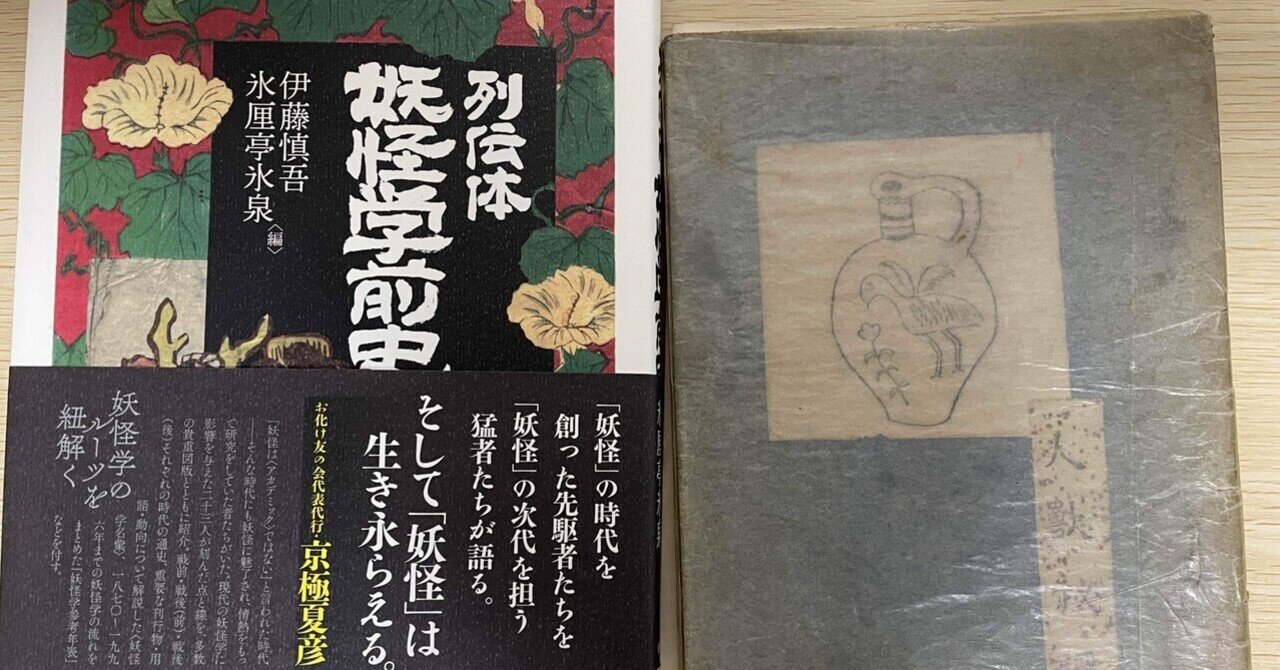 列伝体
妖怪学前史
伊藤慎吾
氷厘亭氷泉〈編〉
「妖怪」の時代を
創った先駆者たちを
「妖怪」の次代を担う
猛者たちが語る。
そして「妖怪」は
生き永らえる。
お化け友の会代表代行・京極夏彦
「妖怪は〈アカデミック〉ではない」と言われた時代
――そんな時代にも妖怪に魅了され、情熱をもっ
て研究をしていた者たちがいた。現代の妖怪学に
影響を与えた二十三人が刻んだ点と線を、多数
の貴重図版とともに紹介。戦前・戦後〈前〉・戦後
〈後〉それぞれの時代の通史、重要な刊行物・用
語・動向について解説した〈妖怪
学名彙〉、一八七〇～一九九
六年までの妖怪学の流れを
まとめた「妖怪学参考年表」
などを付す。
妖怪学の
ルーツを
紐解く
人獣